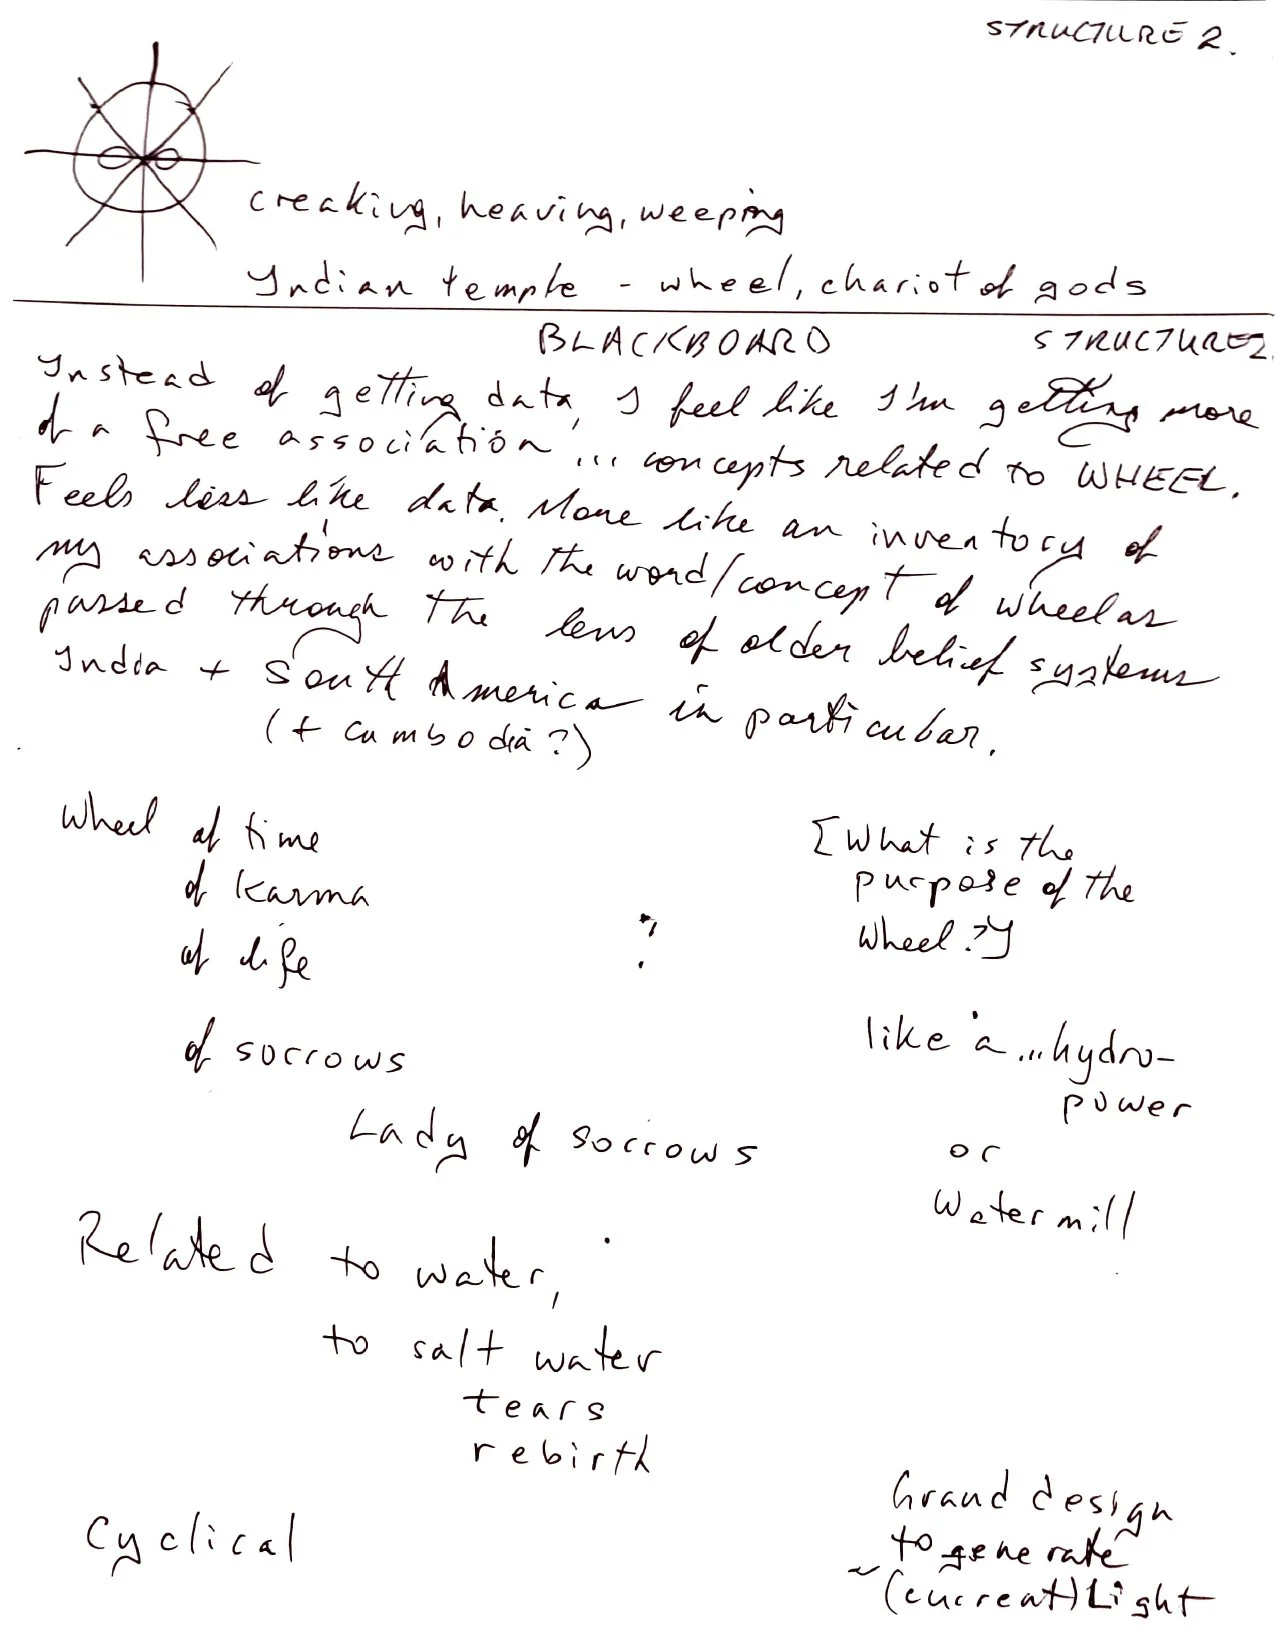 STRUCTURE 2.
creaking, heaving, weeping
Indian temple - wheel, chariot of gods
BLACKBOARD STRUCTURE 2
Instead of getting data, I feel like I'm getting more
of a free association ... concepts related to WHEEL.
Feels less like data. More like an inventory of
my associations with the word/concept of wheel as
passed through the lens of older belief systems
India + South America in particular.
(+ Cambodia?)
Wheel of time
of karma
of life
of sorrows
Lady of sorrows
[What is the
purpose of the
wheel?]
like a ... hydro-
power
or
Watermill
Related to water,
to salt water
tears
rebirth
Cyclical
Grand design
to generate
~(current) Light